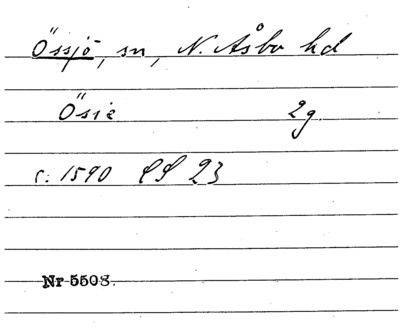 Össjö, sn, N. Åsbo hd
Ösie 2g.
c. 1590 LS 23
Nr 5508.